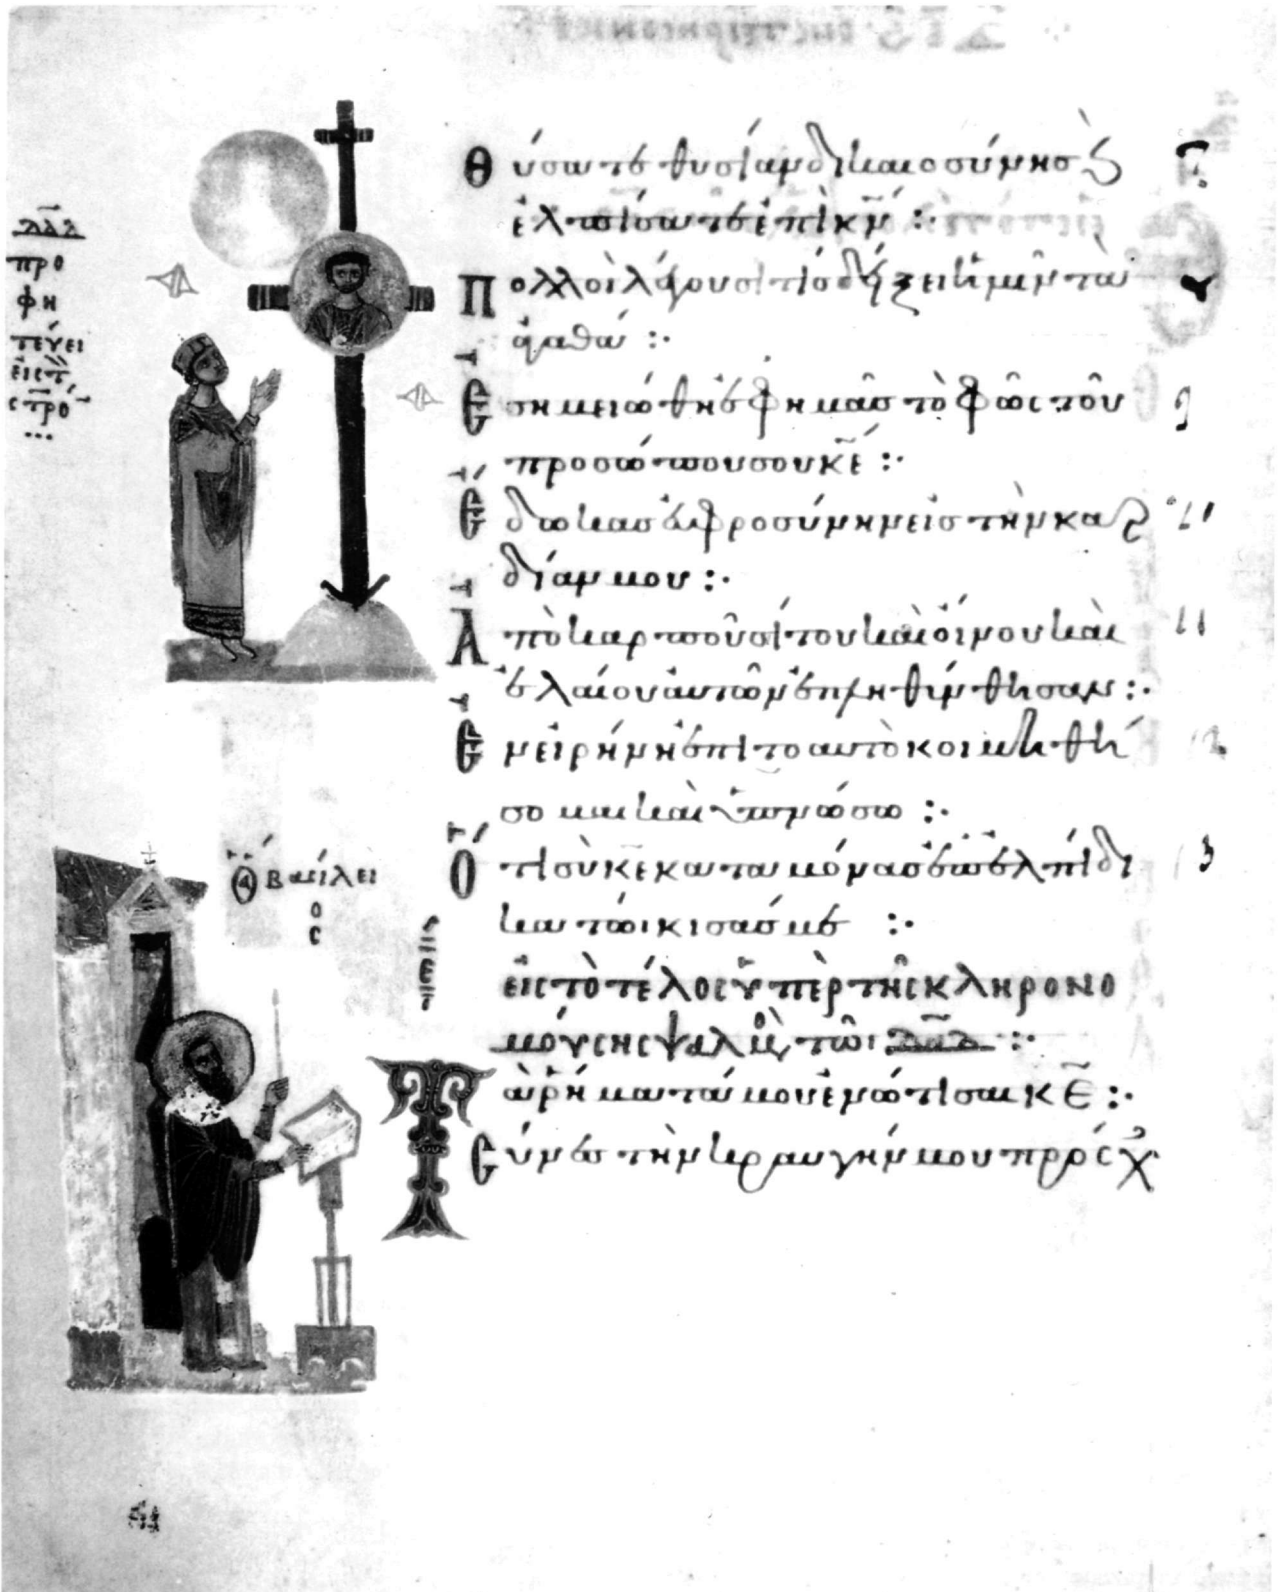 δα̅δ
προ
φη
τεύει
εἰς τ̅
στρό̅
Θύσατε θυσίαν δικαιοσύνης ϗ
ἐλπίσατε ἐπὶ κ̅ν :·
Πολλοὶ λέγουσι τίς δείξει ἡμῖν τὰ
ἀγαθά :·
Ἐσημειώθη ἐφ ἡμᾶς τὸ φῶς τοῦ
προσώπου σου κ̅ε :·
Ἔδωκας εὐφροσύνην εἰς τὴν καρ
δίαν μου :·
Ἀπὸ καρποῦ σίτου καὶ οἴνου καὶ
ἐλαίου αὐτῶν ἐπληθύνθησαν :·
Ἐν εἰρήνῃ ἐπι το αυτὸ κοιμηθή
σομαι καὶ ὑπνώσω :·
Ὅτι σὺ κ̅ε κατα μόνας ἐπ ἐλπίδι
κατώικισάς με :·
εἰς τὸ τέλος ὑπὲρ τῆς κληρονο
μούσης ψαλμ τῶι δα̅δ :·
Τὰ ῥήματά μου ἐνώτισαι κ̅ε :·
Σύνες τὴν κραυγήν μου πρόσχ
Ὁ ἅ βασίλει
ο
ς
9
11
12
13